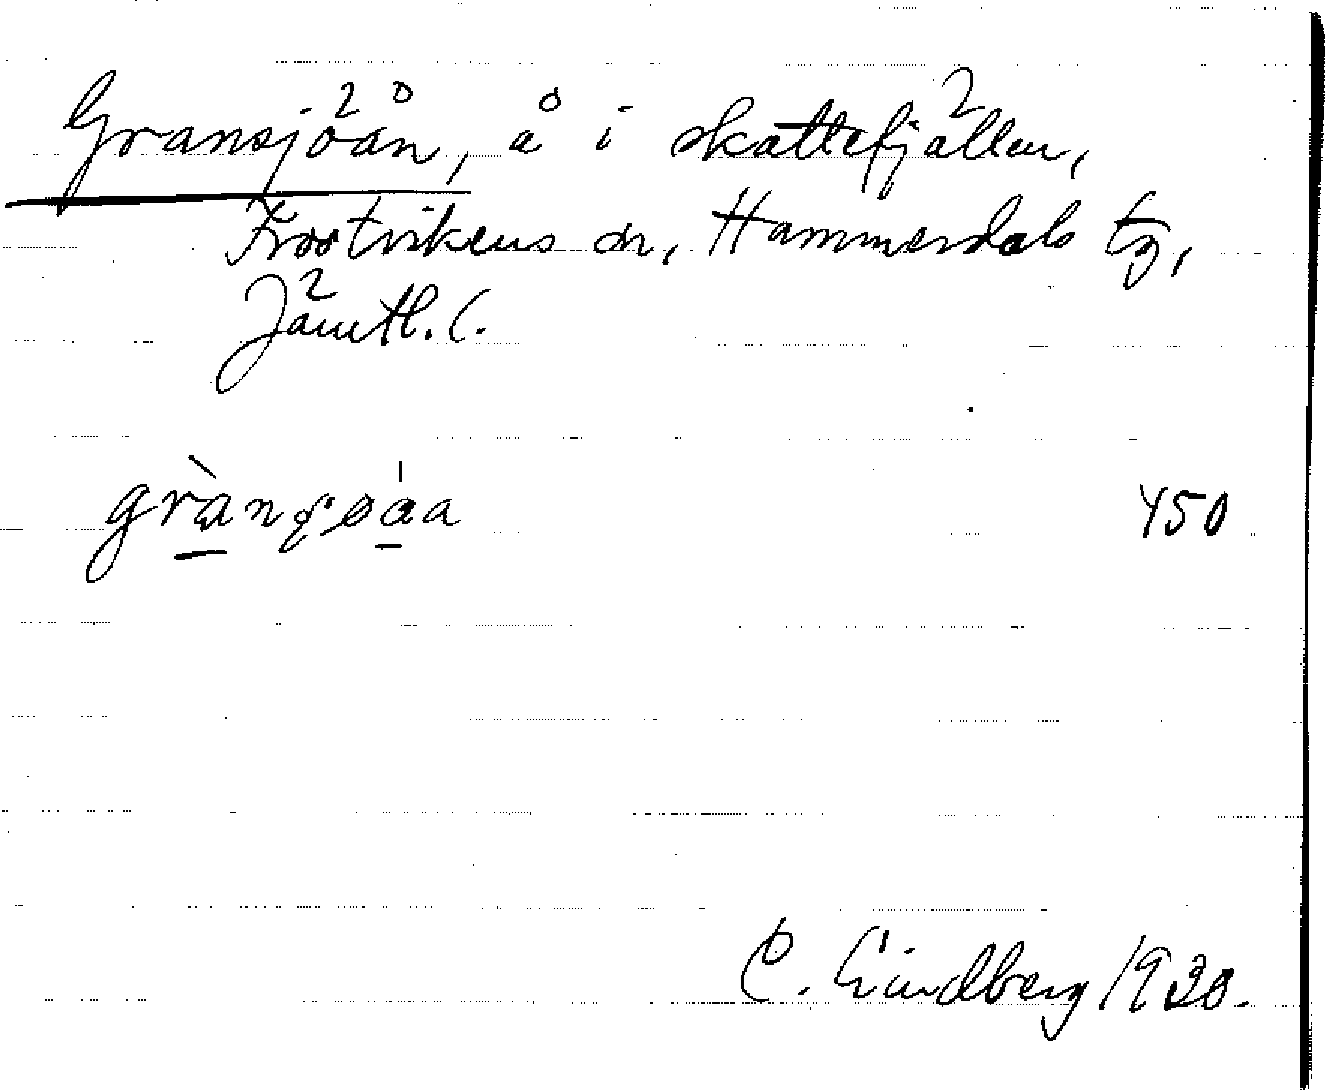 Gransjöån, å i skattefjällen,
Frostvikens sn, Hammerdals tg,
Jämtl. l.
450
C. Lindberg 1930.